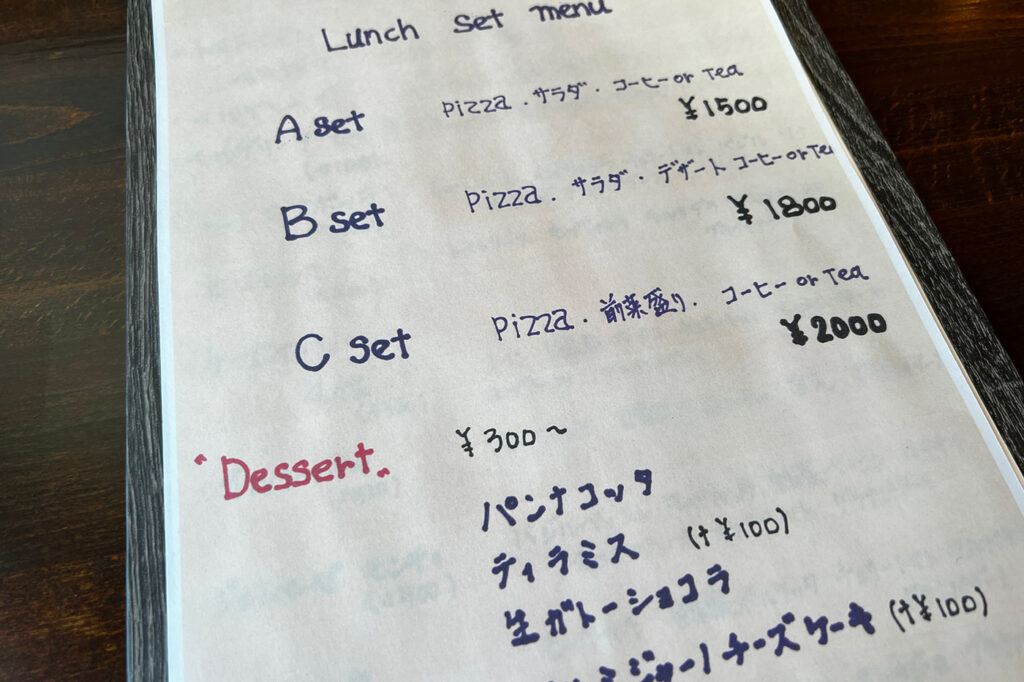 Lunch set menu
A set Pizza・サラダ・コーヒー or Tea
¥1500
B set Pizza・サラダ・デザート コーヒー or Tea
¥1800
C set Pizza・前菜盛り・コーヒー or Tea
¥2000
"Dessert" ¥300〜
パンナコッタ
ティラミス (+¥100)
生ガトーショコラ
チーズケーキ (+¥100)